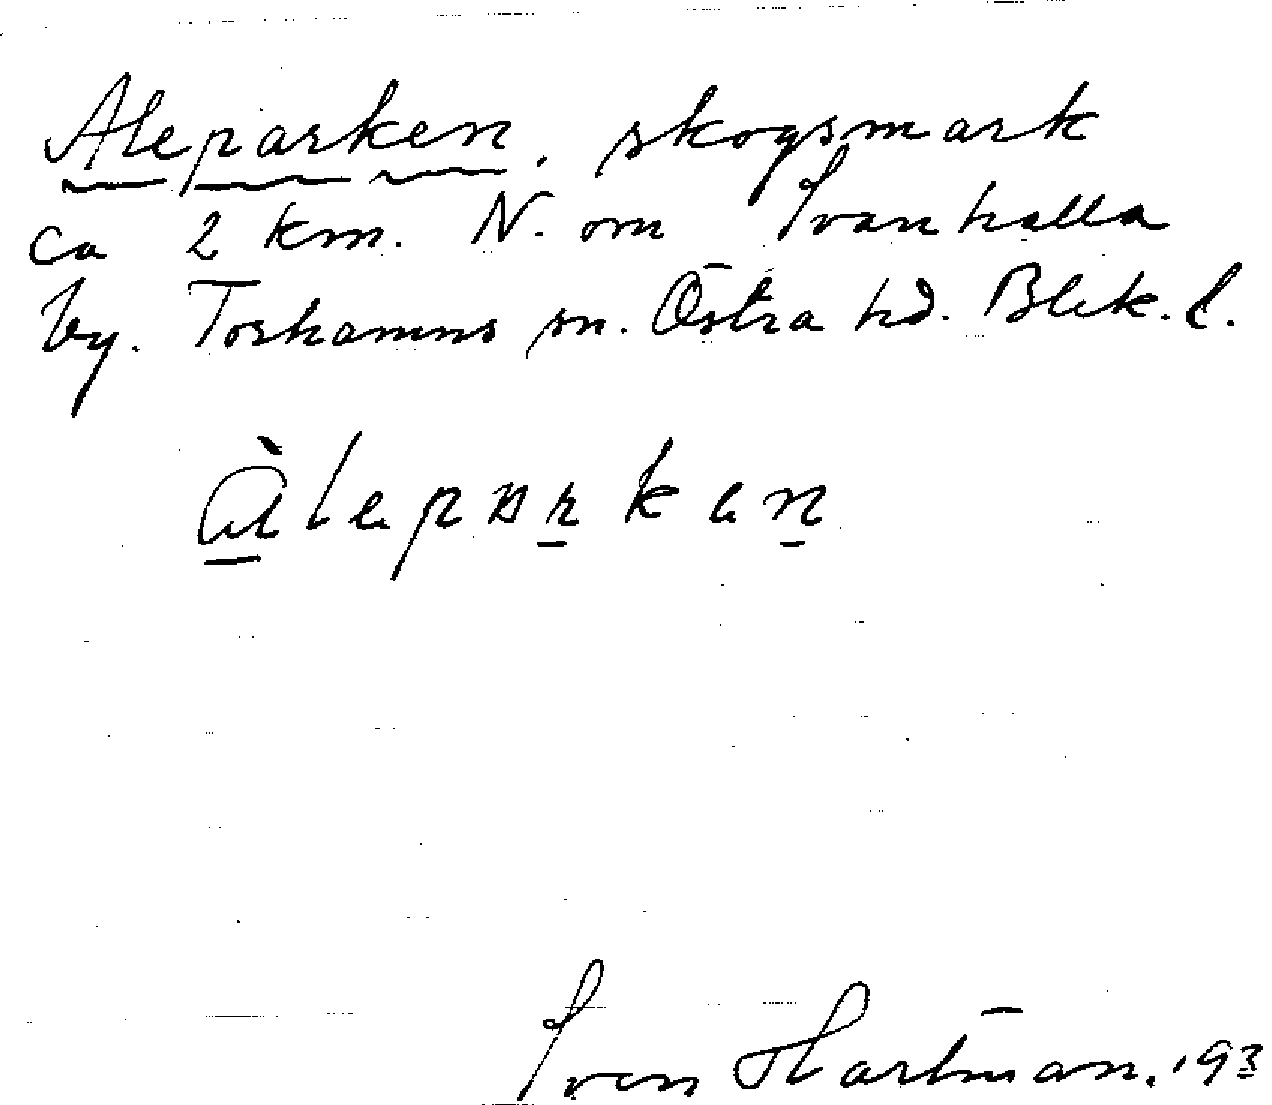 Aleparken. skogsmark
ca 2 km. N. om Ivanhalla
by. Torhamns sn. Östra hd. Blek. l.
àleparken
Iven Hartman. 193